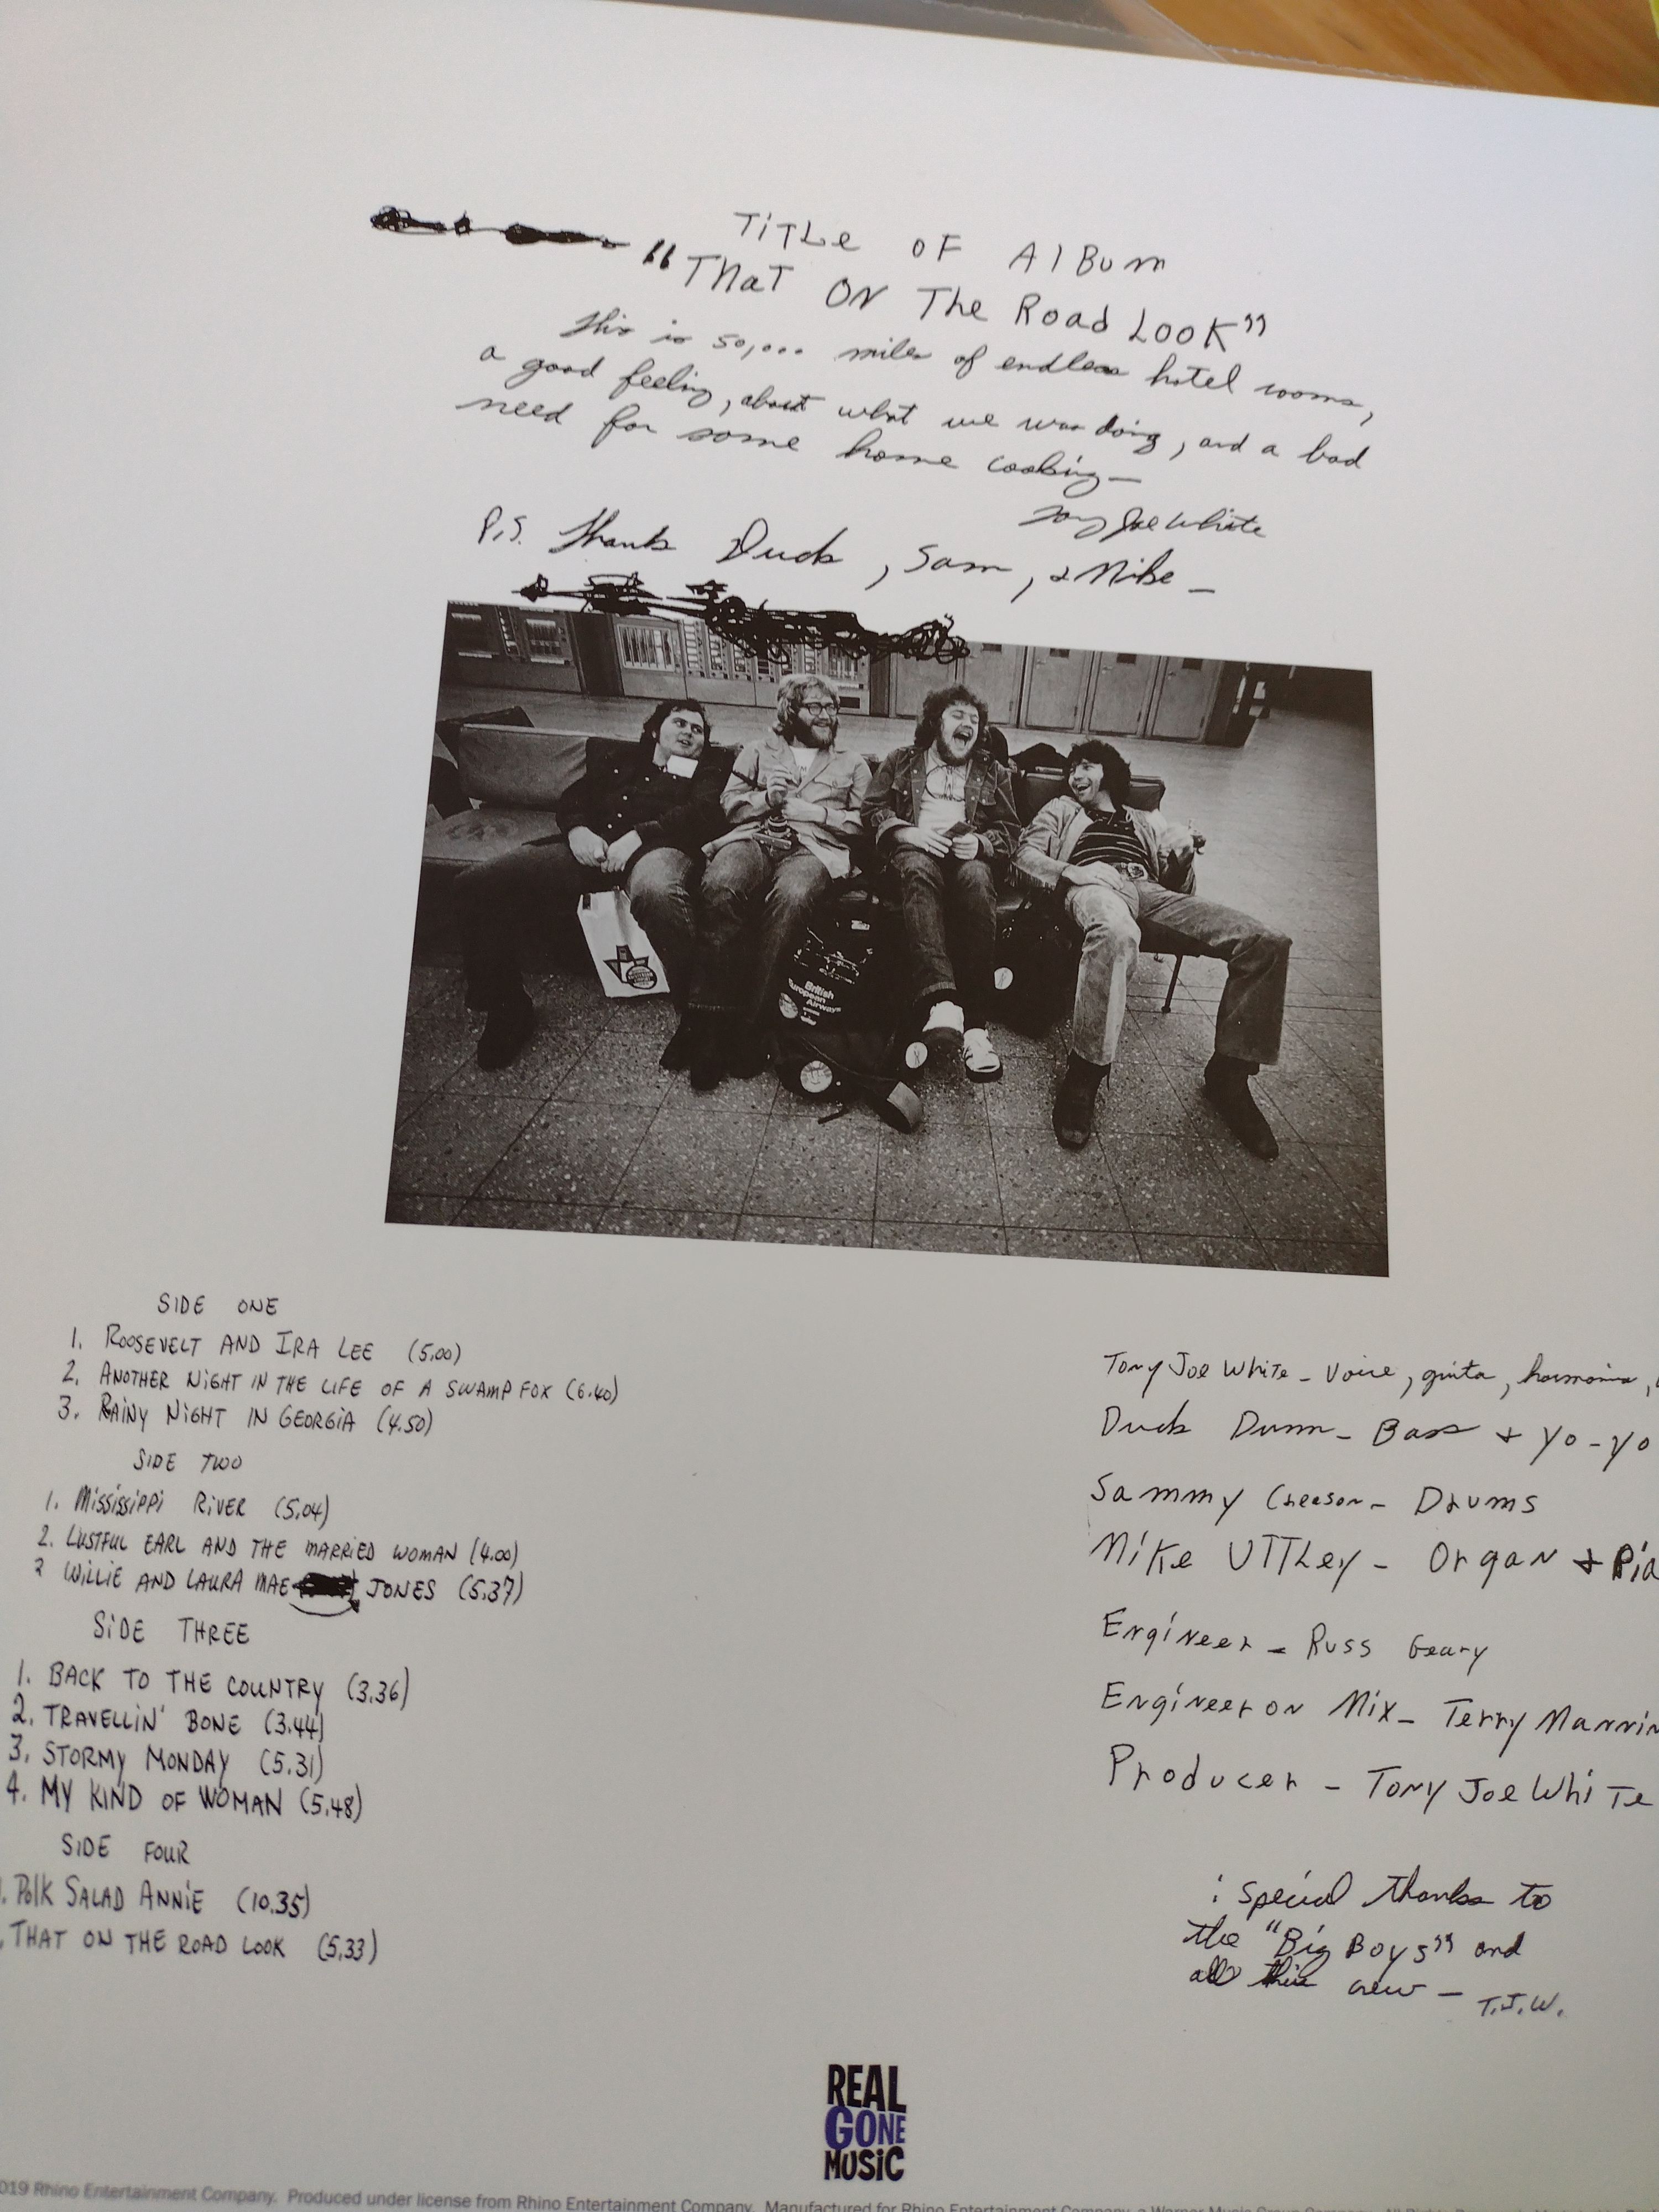 TITLE OF ALBUM
"THAT ON THE ROAD LOOK"
This is 50,000 miles of endless hotel rooms,
a good feeling, about what we was doing, and a bad
need for some home cooking—
Tony Joe White
P.S. Thanks Duck, Sam, & Mike —
British
European
Airways
SIDE ONE
1. ROOSEVELT AND IRA LEE (5.00)
2. ANOTHER NIGHT IN THE LIFE OF A SWAMP FOX (6.40)
3. RAINY NIGHT IN GEORGIA (4.50)
SIDE TWO
1. MISSISSIPPI RIVER (5.04)
2. LUSTFUL EARL AND THE MARRIED WOMAN (4.00)
3 WILLIE AND LAURA MAE JONES (5.37)
SIDE THREE
1. BACK TO THE COUNTRY (3.36)
2. TRAVELLIN' BONE (3.44)
3. STORMY MONDAY (5.31)
4. MY KIND OF WOMAN (5.48)
SIDE FOUR
. POLK SALAD ANNIE (10.35)
. THAT ON THE ROAD LOOK (5.33)
Tony Joe White - Voice, guita, harmonia,
Duck Dunn - Bass & Yo-Yo
Sammy Creason - Drums
Mike Uttley - Organ & Pia
Engineer - Russ Geary
Engineer on Mix - Terry Mannin
Producer - Tony Joe White
: special thanks to
the "Big Boys" and
all their crew — T.J.W.
REAL
GONE
MUSIC
019 Rhino Entertainment Company. Produced under license from Rhino Entertainment Company. Manufactured for Rhino Entertainment Company, a Warner Music Group Company.